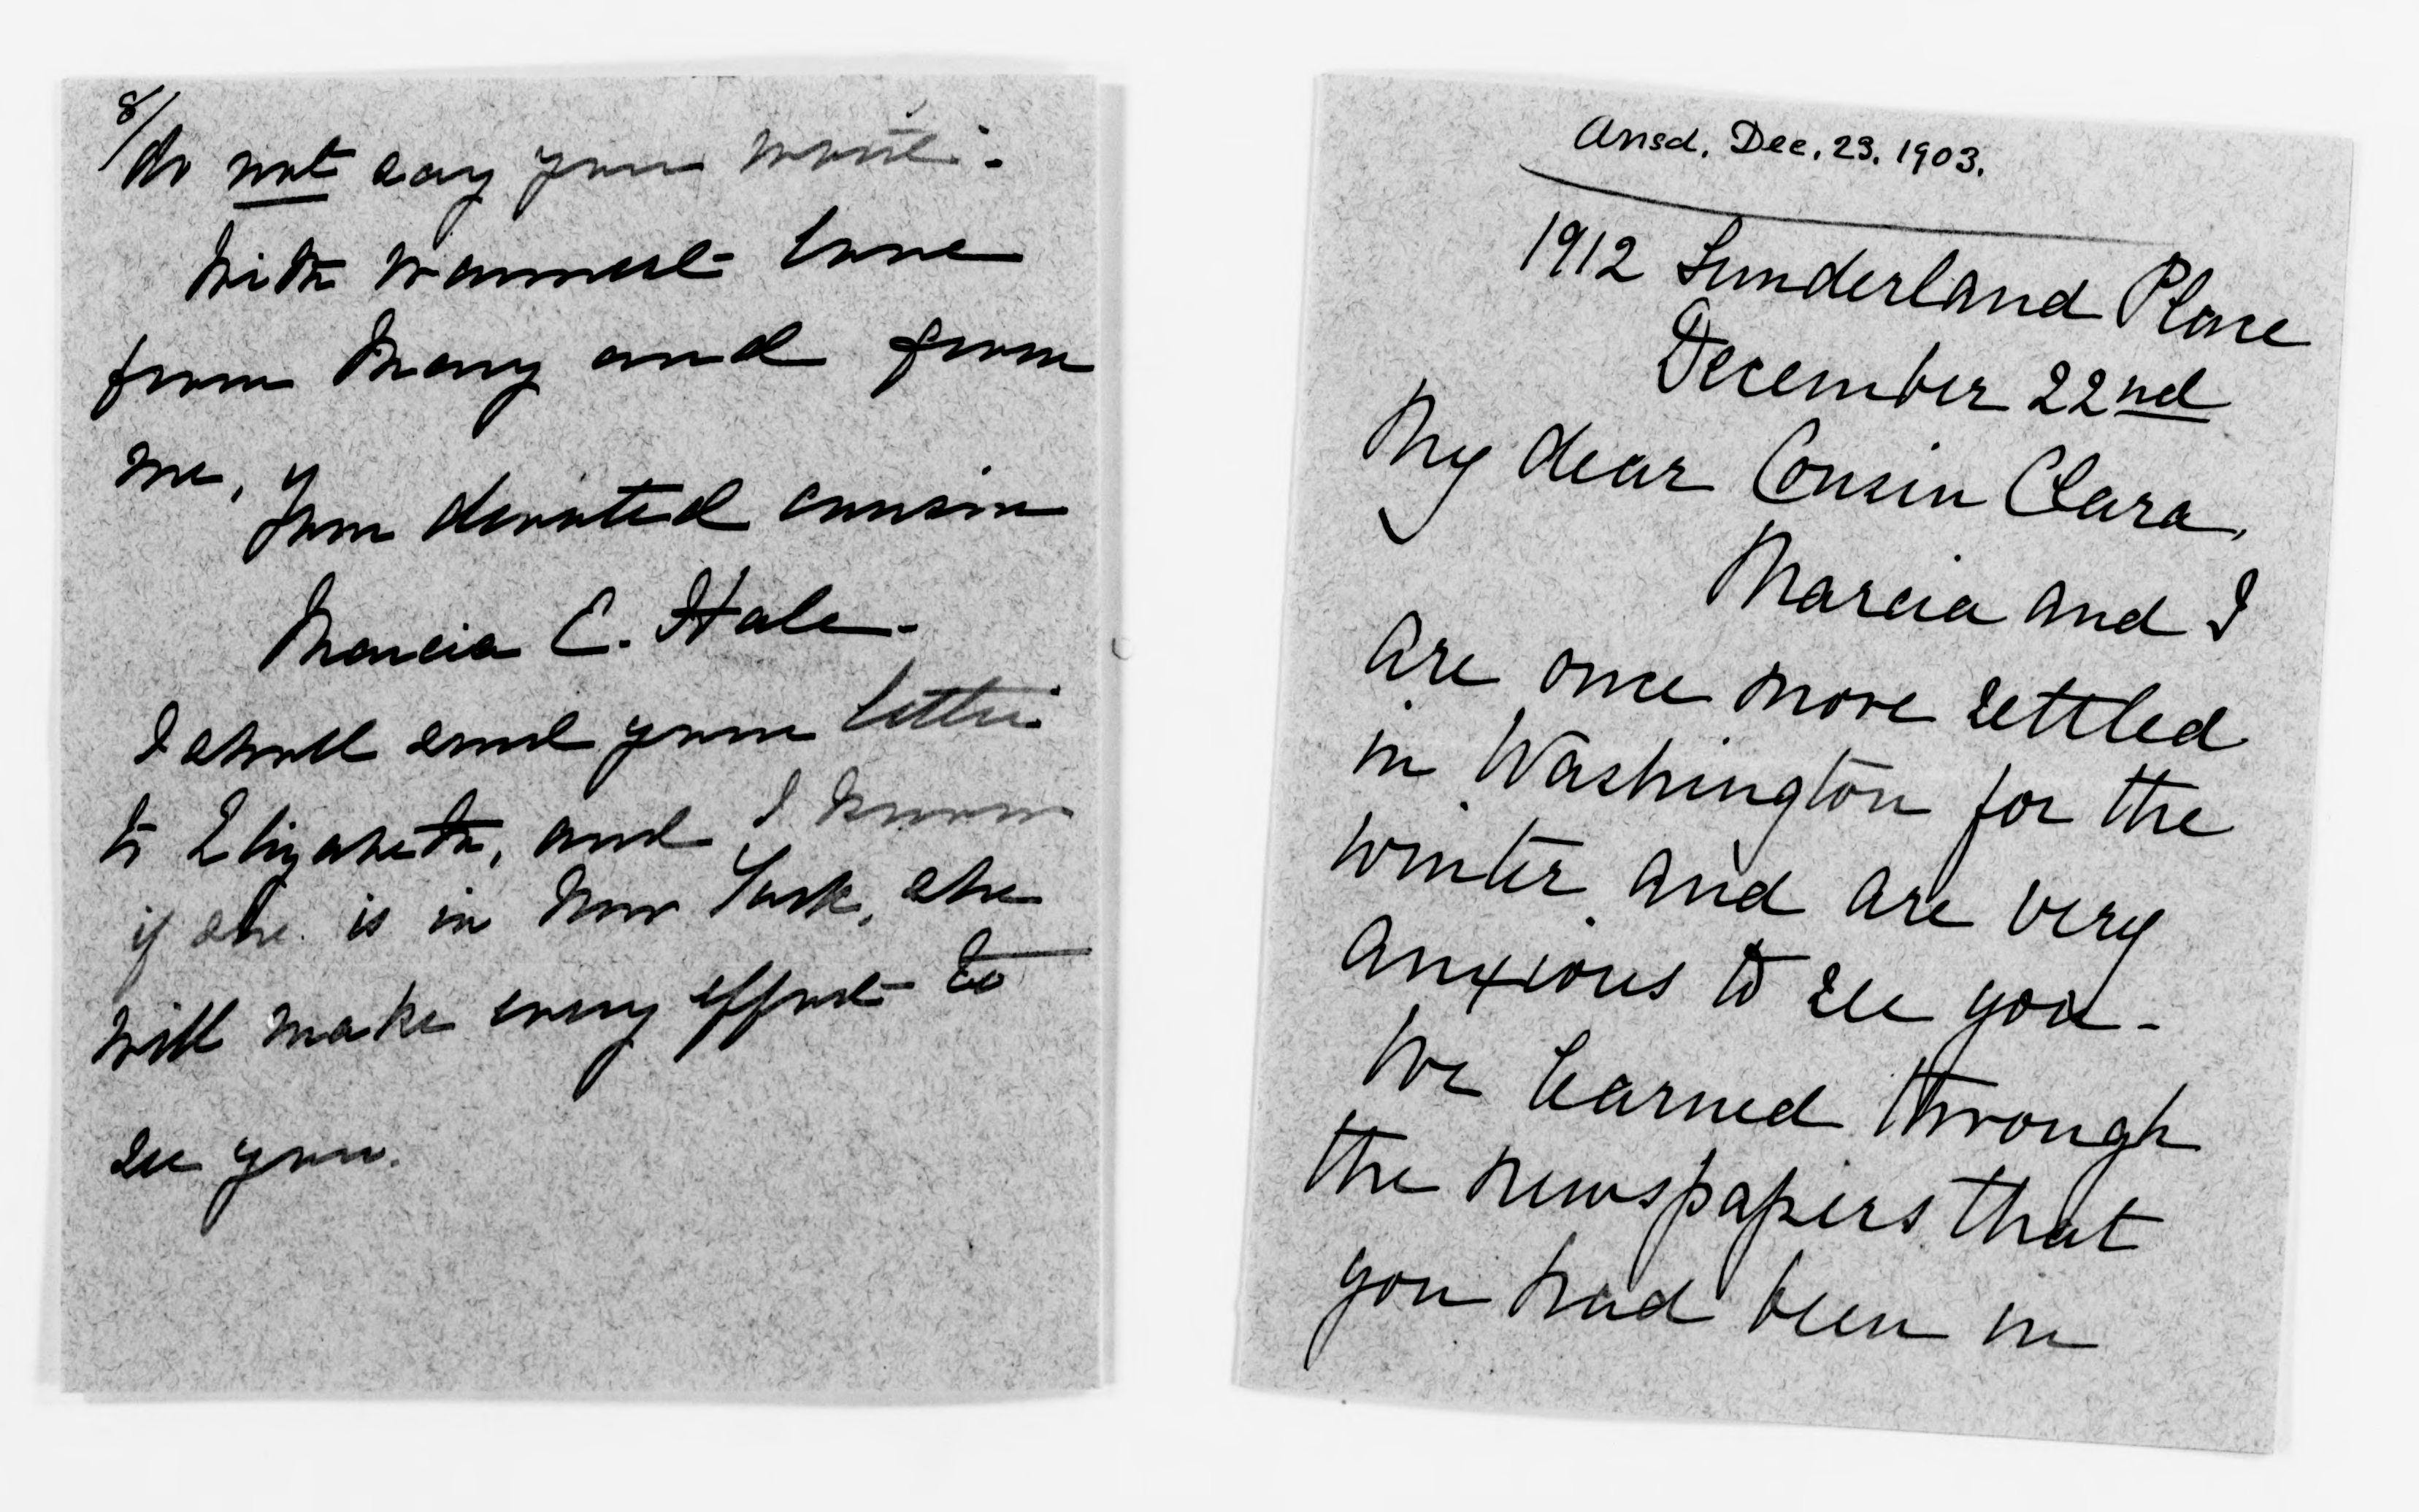 8/
do not say you wait.
With warmest love
from Mary and from
me,
Your devoted cousin
Marcia C. Hale.
I shall send your letter
to Elizabeth, and I know
if she is in New York, she
will make every effort to
see you.
Ansd. Dec. 23. 1903.
1912 Sunderland Place
December 22nd
My dear Cousin Clara,
Marcia and I
are once more settled
in Washington for the
winter and are very
anxious to see you -
We learned through
the newspapers that
you had been in